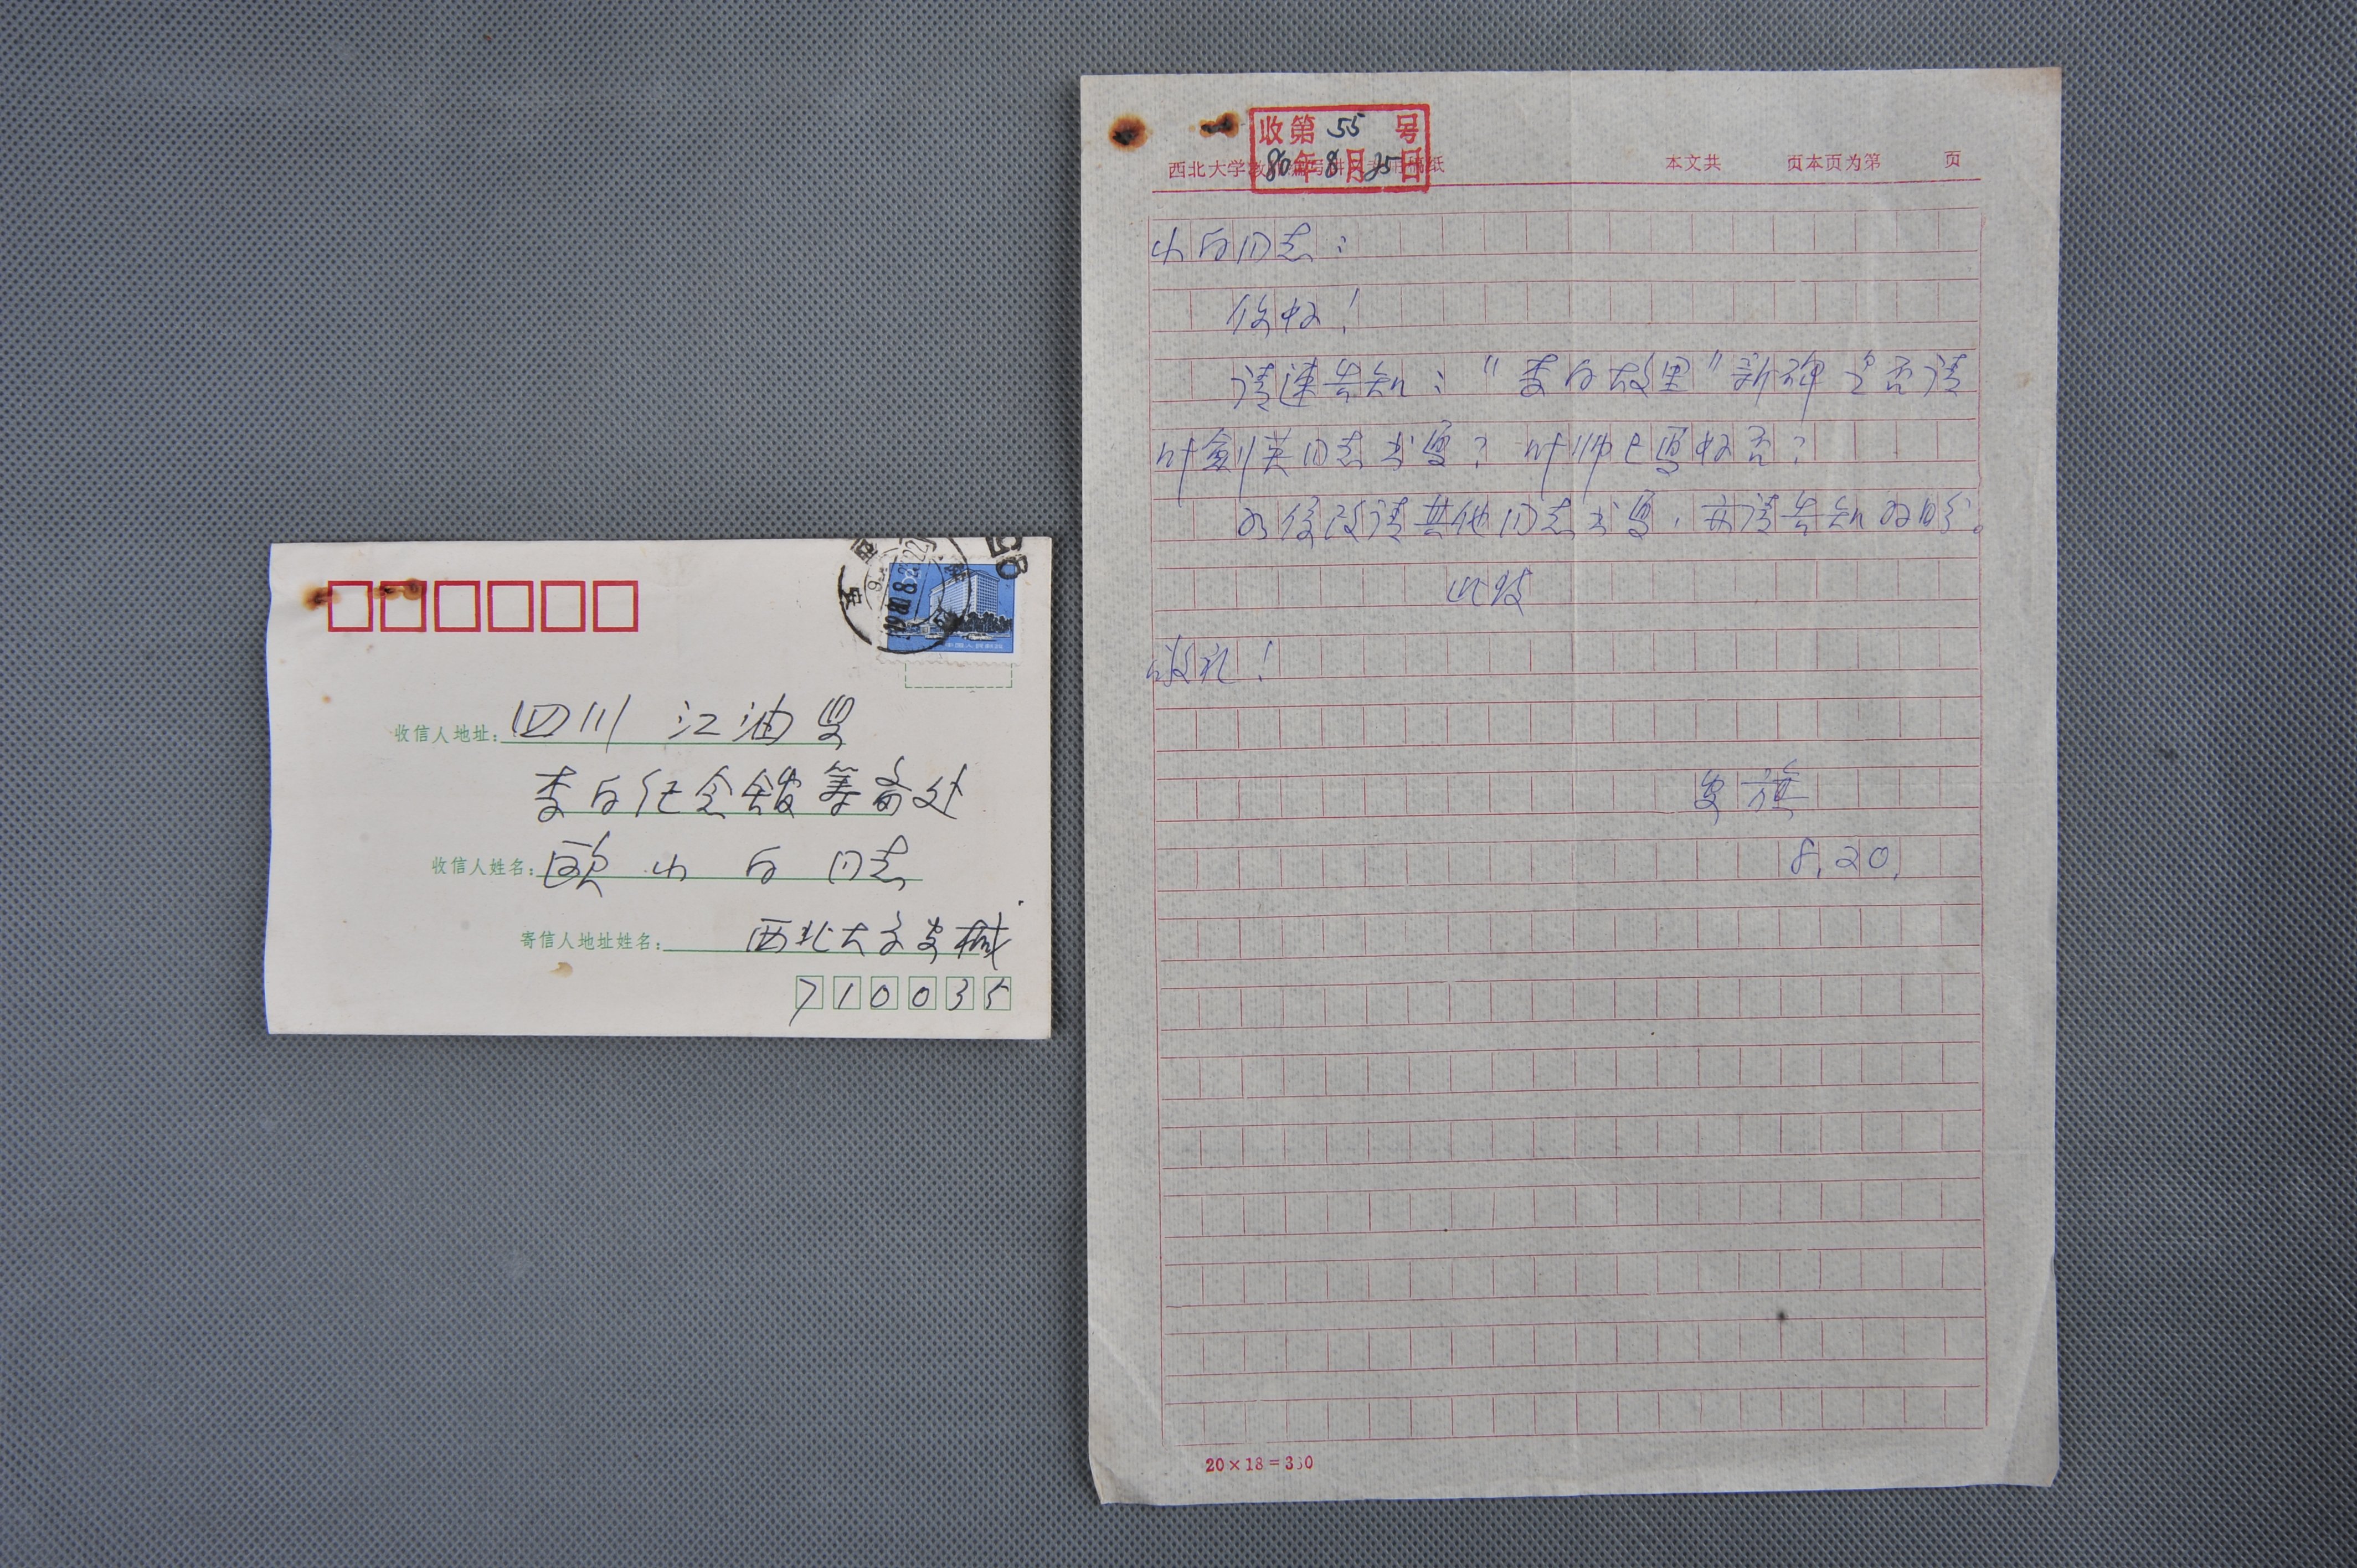 收信人地址: 四川 江油县
李白纪念馆筹备处
收信人姓名: 欧小白同志
寄信人地址姓名: 西北大学安械
710035
收第55号
80年8月25日
西北大学 稿纸 本文共 页本页为第 页
小白同志:
你好!
请速告知:"李白故里"新碑是否请
叶剑英同志书写?叶帅已写好否?
如系改请其他同志书写,亦请告知为盼。
此致
敬礼!
安旗
8.20.
20×18=360